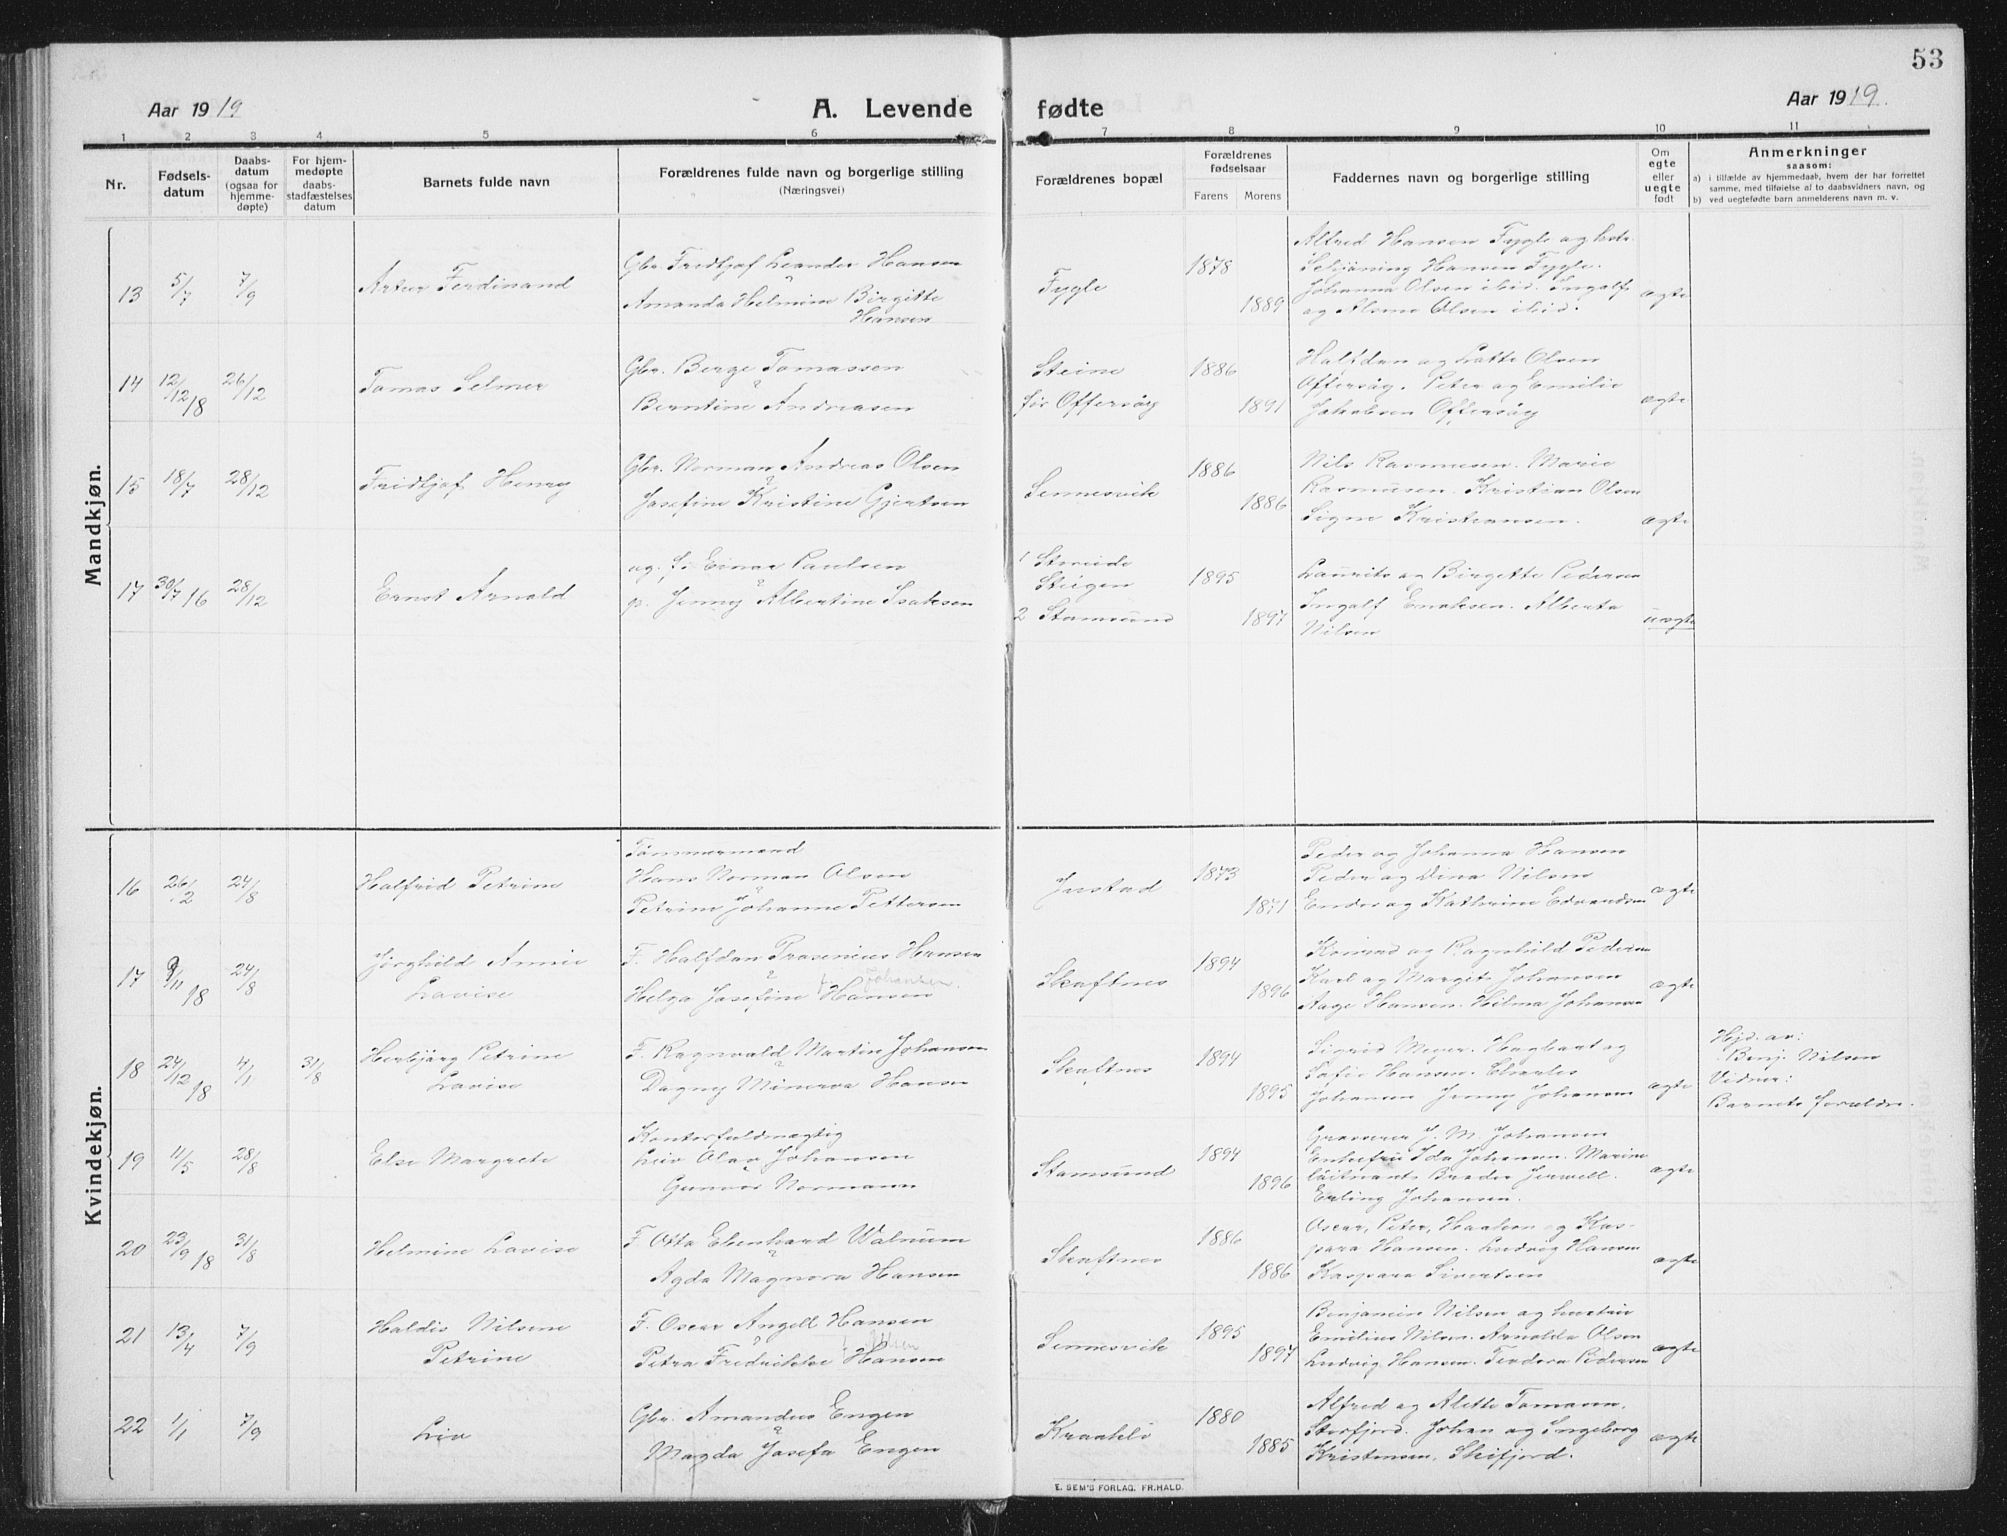 53
Aar 1919
A. Levende
fødte
Aar 1919.
1 2 3 4 5 6 7 8 9 10 11
Nr.
Fødsels-
datum
Daabs-
datum
(ogsaa for
hjemme-
døpte)
For hjem-
medøpte
daabs-
stadfæstelses
datum
Barnets fulde navn
Forældrenes fulde navn og borgerlige stilling
(Næringsvei)
Forældrenes bopæl
Forældrenes
fødselsaar
Farens Morens
Faddernes navn og borgerlige stilling
Om
egte
eller
uegte
født
Anmerkninger
saasom:
a) i tilfælde av hjemmedaab, hvem der har forrettet
samme, med tilføielse af to daabsvidners navn, og
b) ved uegtefødte barn anmelderens navn m. v.
Mandkjøn.
13 5/7 7/9 Artur Ferdinand
Gbr. Fredtjof Leander Hansen
Amanda Helmine Birgitte
Hansen
Fygle 1878 1889
Alfred Hansen Fygle og hstr.
Schjøning Hansen Fygle.
Johanna Olsen ibid. Ingolf
og Alvine Olsen ibid.
ægte
14 12/12 18 26/12 Tomas Selmer
Gbr. Berge Tomassen
Berntine Andreasen
Steine
før Offersøy
1886 1891
Halfdan og Lotte Olsen
Offersøy. Peter og Emilie
Jakobsen Offersøy
ægte
15 18/7 28/12 Fridtjof Henry
Gbr. Norman Andreas Olsen
Josefine Kristine Gjertsen
Sennesvik 1886 1886
Nils Rasmusen. Marie
Rasmusen. Kristian Olsen
Signe Kristiansen.
ægte
17 30/7 16 28/12 Ernst Arnold
ug. f. Einar Paulsen
p. Jenny Albertine Isaksen
1
Steigen
2 Stamsund
1895 1897
Laurits og Birgitte Pedersen
Ingolf Enoksen. Alberta
Nilsen
uægte
Kvindekjøn.
16 26/2 24/8 Halfrid Petrine
Tømmermand
Hans Norman Olsen
Petrine Johanne Pettersen
Justad 1873 1871
Peder og Johanna Hansen
Peder og Dina Nilsen
Ender og Kathrine Edvardsen
ægte
17 9/11 18 24/8 Jørghild Annie
Lovise
F. Halfdan Hansen
Helga Josefine Hansen
f. Johansen.
Skaftnes 1894 1896
Konrad og Ragnhild Pedersen
Karl og Margit Johansen
Aage Hansen. Hilma Johansen
ægte
18 24/12 18 4/1 31/8 Herbjørg Petrine
Lovise
F. Ragnvald Martin Johansen
Dagny Minerva Hansen
Skaftnes 1894 1895
Sigrid Meyer. Hagbart og
Sofie Hansen. Charles
Johansen Jenny Johansen
ægte
Hjd. av:
Benj. Nilsen
Vidner:
Barnets forældre.
19 11/5 28/8 Else Margrete
Kontorfuldmægtig
Leiv Olav Johansen
Gunvor Normann
Stamsund 1894 1896
Grosserer J. M. Johansen
Enkefru Ida Johansen. Marine
løitnant Jerwell.
Erling Johansen.
ægte
20 23/9 18 31/8 Helmine Lovise
F Otto Edenhard Walnum
Agda Magnora Hansen
Skaftnes 1886 1886
Oscar, Peter, Haakon og Kas-
para Hansen. Ludvig Hansen
Kaspara Sivertsen
ægte
21 13/4 7/9 Haldis Nilsine
Petrine
F. Oscar Angell Hansen
Petra Fredrikke Hansen
Sennesvik 1895 1897
Benjamin Nilsen og hustru
Emilius Nilsen. Arnolda Olsen
Ludvig Hansen. Teodora Pedersen
ægte
22 1/1 7/9 Liv
Gbr. Amandus Engen
Magda Josefa Engen
Kraakli 1880 1885
Alfred og Alette Tomassen.
Storfjord. Johan og Ingeborg
Kristensen, Skifjord.
ægte
E. SEM'S FORLAG, FR.HALD.